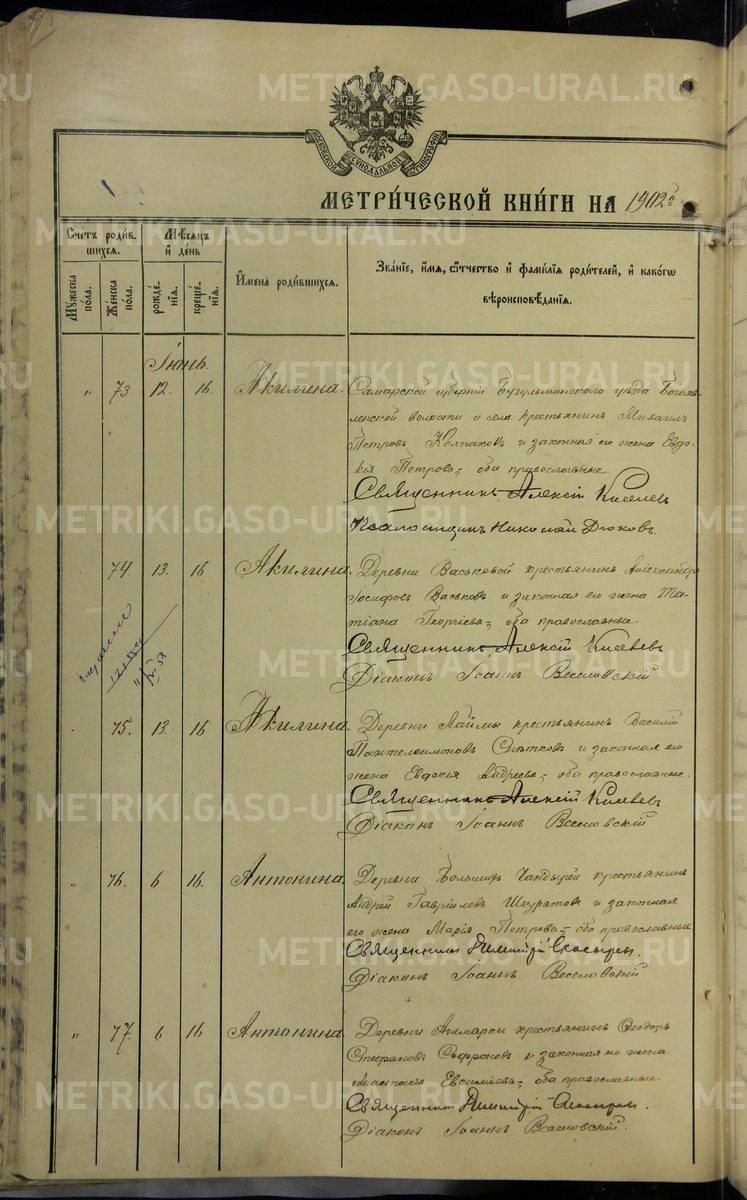 METRIKI.GASO-URAL.RU
МОСКОВСКОЙ СѴНОДАЛЬНОЙ ТИПОГРАФІИ
МЕТРИ́ЧЕСКОЙ КНИ́ГИ НА 1902й
Счетъ роди́вшихся.
Мѣ́сяцъ и҆ день
И҆мена̀ роди́вшихся.
Зва́нїе, и҆́мя, ѻ҆́тчество и҆ фами́лїѧ роди́телей, и҆ како́гѡ вѣроисповѣ́данїѧ.
Му́жеска по́ла.
Же́нска по́ла.
рожде́нїѧ.
креще́нїѧ.
Іюнь.
" 73. 12. 16. Акилина. Самарской губерніи Бугульминскаго уѣзда Богояв-
ленской волости и села крестьянинъ Михаилъ
Петровъ Колпаковъ и законная его жена Евдо-
кія Петрова, оба православные.
Священникъ Алексій Киселев
Псаломщикъ Николай Дюковъ.
74. 13. 16 Акилина. Деревни Васьковой крестьянинъ Александръ
Іосифовъ Васьковъ и законная его жена Та-
тіана Георгіева, оба православные.
Священникъ Алексій Киселевъ
Діаконъ Іоаннъ Веселовскій
75. 13. 16 Акилина. Деревни Лаймы крестьянинъ Василій
Пантелеимоновъ и законная его
жена Евдокія Андреева, оба православные.
Священникъ Алексій Киселевъ
Діаконъ Іоаннъ Веселовскій
" 76. 6 16. Антонина. Деревни Большихъ Чандырей крестьянинъ
Андрей Гавріиловъ Шкуратовъ и законная
его жена Марія Петрова, оба православные
Священникъ Димитрій
Діаконъ Іоаннъ Веселовскій
" 77. 6 16 Антонина. Деревни крестьянинъ Ѳеодоръ
Стефановъ и законная его жена
Анастасія Евсиміева, оба православные.
Священникъ Димитрій
Діаконъ Іоаннъ Веселовскій.